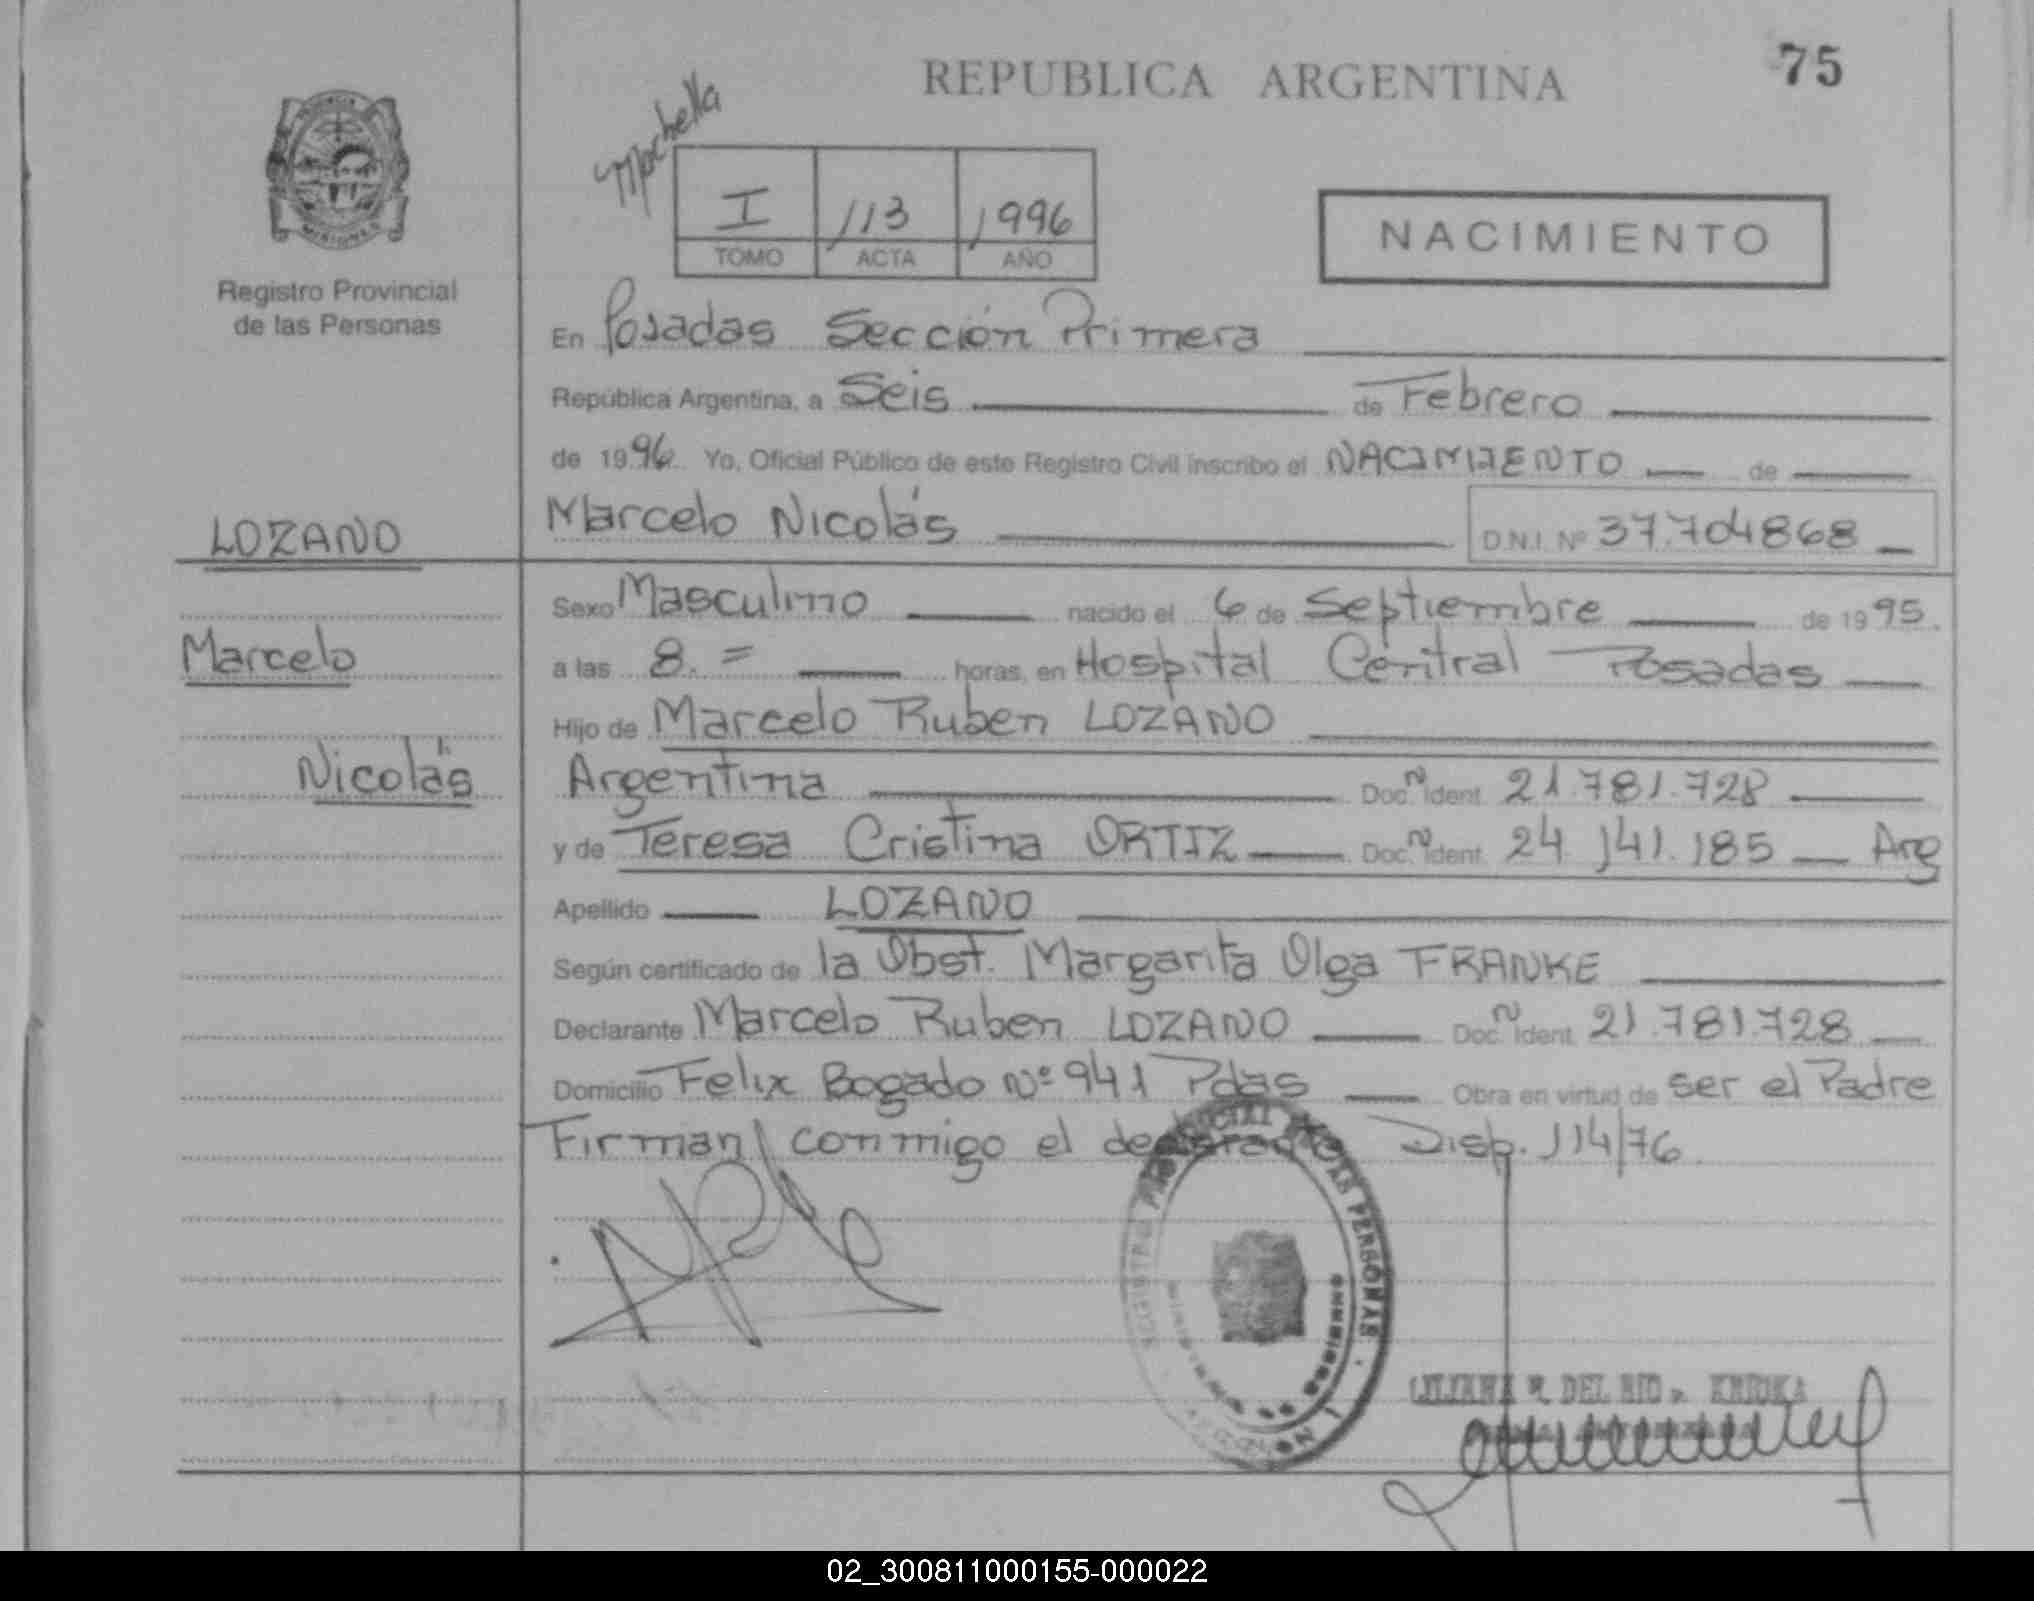 REPUBLICA ARGENTINA
75
Mochella
I 113 1996
TOMO ACTA AÑO
NACIMIENTO
MISIONES
Registro Provincial
de las Personas
En Posadas Sección Primera
República Argentina, a Seis de Febrero
de 1996 Yo, Oficial Público de este Registro Civil inscribo el NACIMIENTO de
LOZANO
Marcelo Nicolás D.N.I. Nº 37.704868
Sexo Masculino nacido el 6 de Septiembre de 1995
Marcelo
a las 8.= horas, en Hospital Central Posadas
Hijo de Marcelo Ruben LOZANO
Nicolás
Argentina Doc. Ident. 21.781.728
y de Teresa Cristina ORTIZ Doc. Ident. 24.141.185 Arg
Apellido LOZANO
Según certificado de la Obst. Margarita Olga FRANKE
Declarante Marcelo Ruben LOZANO Doc. Ident. 21.781.728
Domicilio Felix Bogado Nº 941 Pdas Obra en virtud de ser el Padre
Firman conmigo el Disp. 114/76
LAS PERSONAS
DEL RIO
02_300811000155-000022